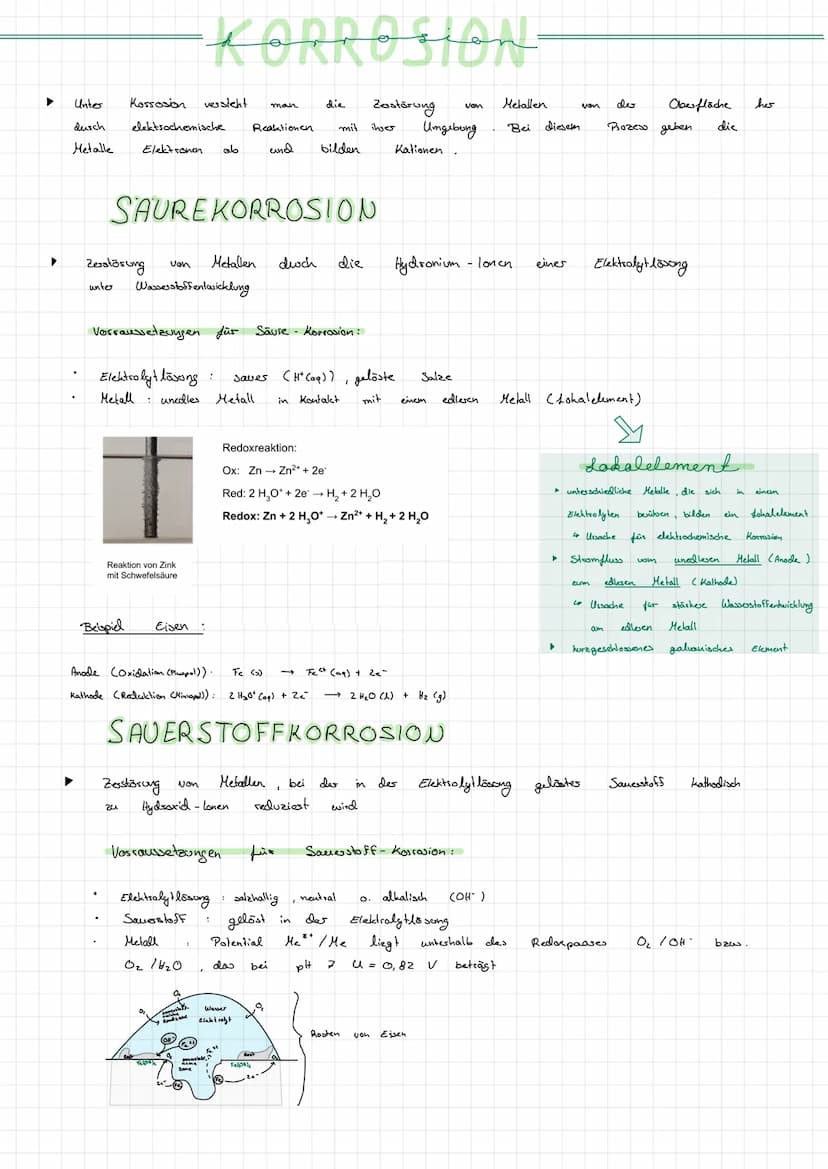 KORROSION
korrosion
Unter Korrosion versteht man die Zerstörung von Metallen von der Oberfläche her
durch elektrochemische Reaktionen mit ihrer Umgebung. Bei diesem Prozess geben die
Metalle Elektronen ab und bilden Kationen.
SÄUREKORROSION
Zerstörung von Metallen durch die Hydronium-Ionen einer Elektrolytlösung
unter Wasserstoffentwicklung
Vorraussetzungen für Säure-Korrosion:
Elektrolytlösung: saures (H⁺(aq)), gelöste Salze
Metall: unedles Metall in Kontakt mit einem edleren Metall (Lokalelement)
Redoxreaktion:
Ox: Zn → Zn²⁺ + 2e⁻
Red: 2 H₃O⁺ + 2e⁻ → H₂ + 2 H₂O
Redox: Zn + 2 H₃O⁺ → Zn²⁺ + H₂ + 2 H₂O
Reaktion von Zink
mit Schwefelsäure
Lokalelement
unterschiedliche Metalle, die sich in einem
Elektrolyten berühren, bilden ein Lokalelement
↳ Ursache für elektrochemische Korrosion
Stromfluss vom unedlesen Metall (Anode)
zum edlesen Metall (Kathode)
↳ Ursache für stärkere Wasserstoffentwicklung
am edlesen Metall
kurzgeschlossenes galvanisches Element
Beispiel Eisen:
Anode (Oxidation (Pluspol)): Fe (s) → Fe²⁺ (aq) + 2e⁻
Kathode (Reduktion (Minuspol)): 2 H₃O⁺ (aq) + 2e⁻ → 2 H₂O (l) + H₂ (g)
SAUERSTOFFKORROSION
Zerstörung von Metallen, bei der in der Elektrolytlösung gelöstes Sauerstoff kathodisch
zu Hydroxid-Ionen reduziert wird
Vorraussetzungen für Sauerstoff-Korrosion:
Elektrolytlösung: salzhaltig, neutral o. alkalisch (OH⁻)
Sauerstoff: gelöst in der Elektrolytlösung
Metall: Potential Me²⁺/Me liegt unterhalb des Redoxpaares O₂/OH⁻ bzw.
O₂/H₂O, das bei pH 7 U = 0,82 V beträgt
O₂
O₂
O₂
Wasser
Elektrolyt
OH⁻
Fe²⁺
Fe²⁺
Rost
Rost
Fe(OH)₂
Fe(OH)₂
2e⁻
Fe
Fe
2e⁻
Rosten von Eisen